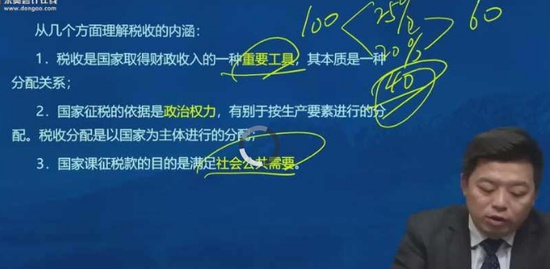 www.dongao.com
从几个方面理解税收的内涵：
1．税收是国家取得财政收入的一种重要工具，其本质是一种
分配关系；
2．国家征税的依据是政治权力，有别于按生产要素进行的分
配。税收分配是以国家为主体进行的分配；
3．国家课征税款的目的是满足社会公共需要。
100 25% 60
20%
40